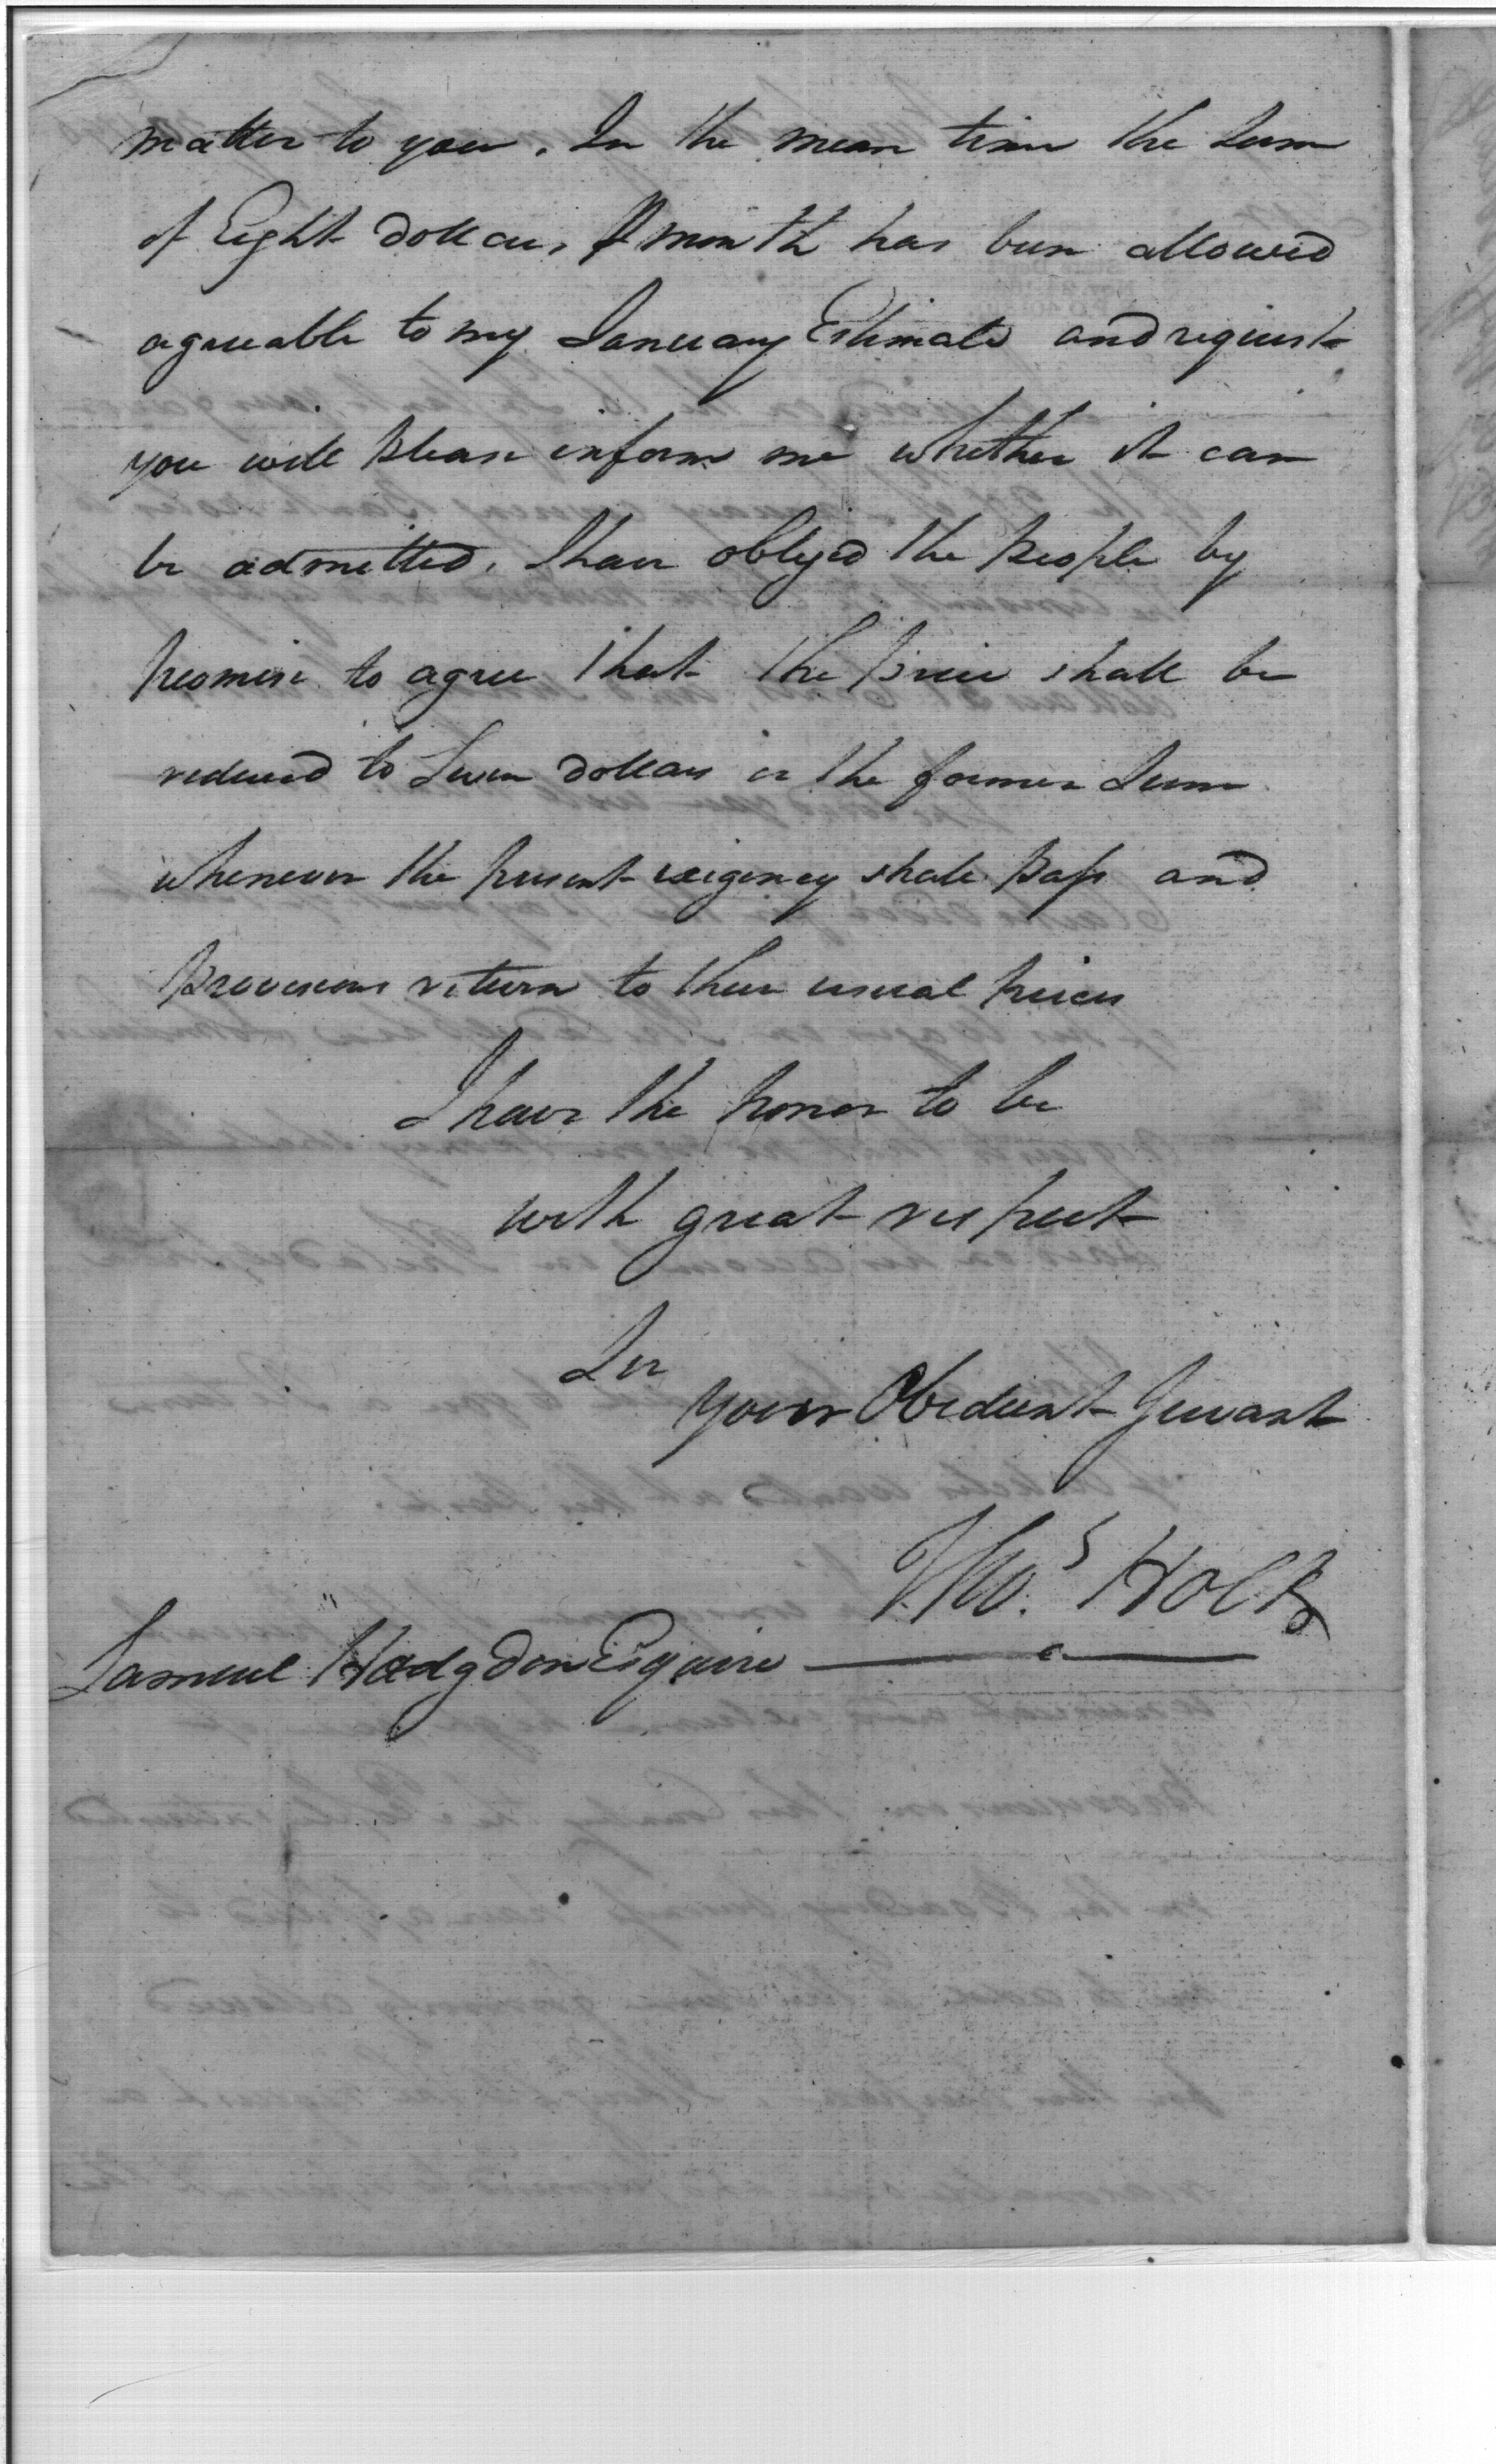 matter to you. In the mean time the Sum
of Eight dollars ⅌ month has been allowed
agreeable to my January Estimate and request
you will please inform me whether it can
be admitted. I have obliged the People by
promise to agree that the price shall be
reduced to Seven dollars or the former Sum
whenever the present exigency shall pass and
Provisions return to their usual prices
I have the honor to be
with great respect
Sir
your Obedient Servant
Thos. Holt
Samuel Hodgdon Esquire